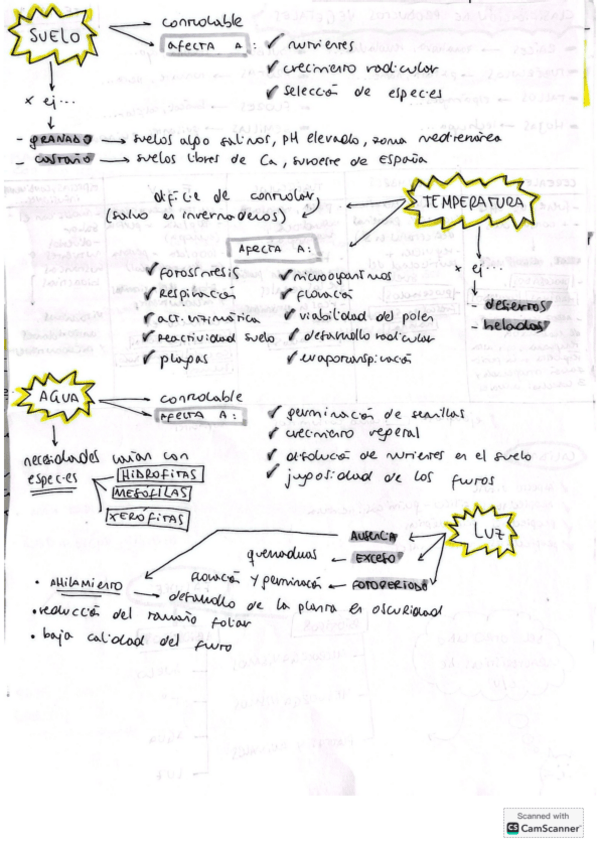 SUELO
controlable
AFECTA A: ✓ nutrientes
✓ crecimiento radicular
✓ selección de especies
x ej...
- GRANADO → suelos algo salinos, pH elevado, zona mediterránea
- CASTAÑO → suelos libres de Ca, suroeste de España
TEMPERATURA
difícil de controlar
(salvo en invernaderos)
AFECTA A:
✓ fotosíntesis
✓ Respiración
✓ act. enzimática
✓ Reactividad suelo
✓ plagas
✓ microorganismos
✓ floración
✓ viabilidad del polen
✓ desarrollo radicular
✓ evapotranspiración
x ej...
- desiertos
- heladas
AGUA
controlable
AFECTA A:
✓ germinación de semillas
✓ crecimiento vegetal
✓ disolución de nutrientes en el suelo
✓ jugosidad de los frutos
necesidades varían con
especies
HIDROFITAS
MESÓFILAS
XERÓFITAS
LUZ
AUSENCIA
quemaduras ← EXCESO
floración y germinación ← FOTOPERIODO
• AHILAMIENTO → desarrollo de la planta en oscuridad
• reducción del tamaño foliar
• baja calidad del fruto
Scanned with
CS CamScanner